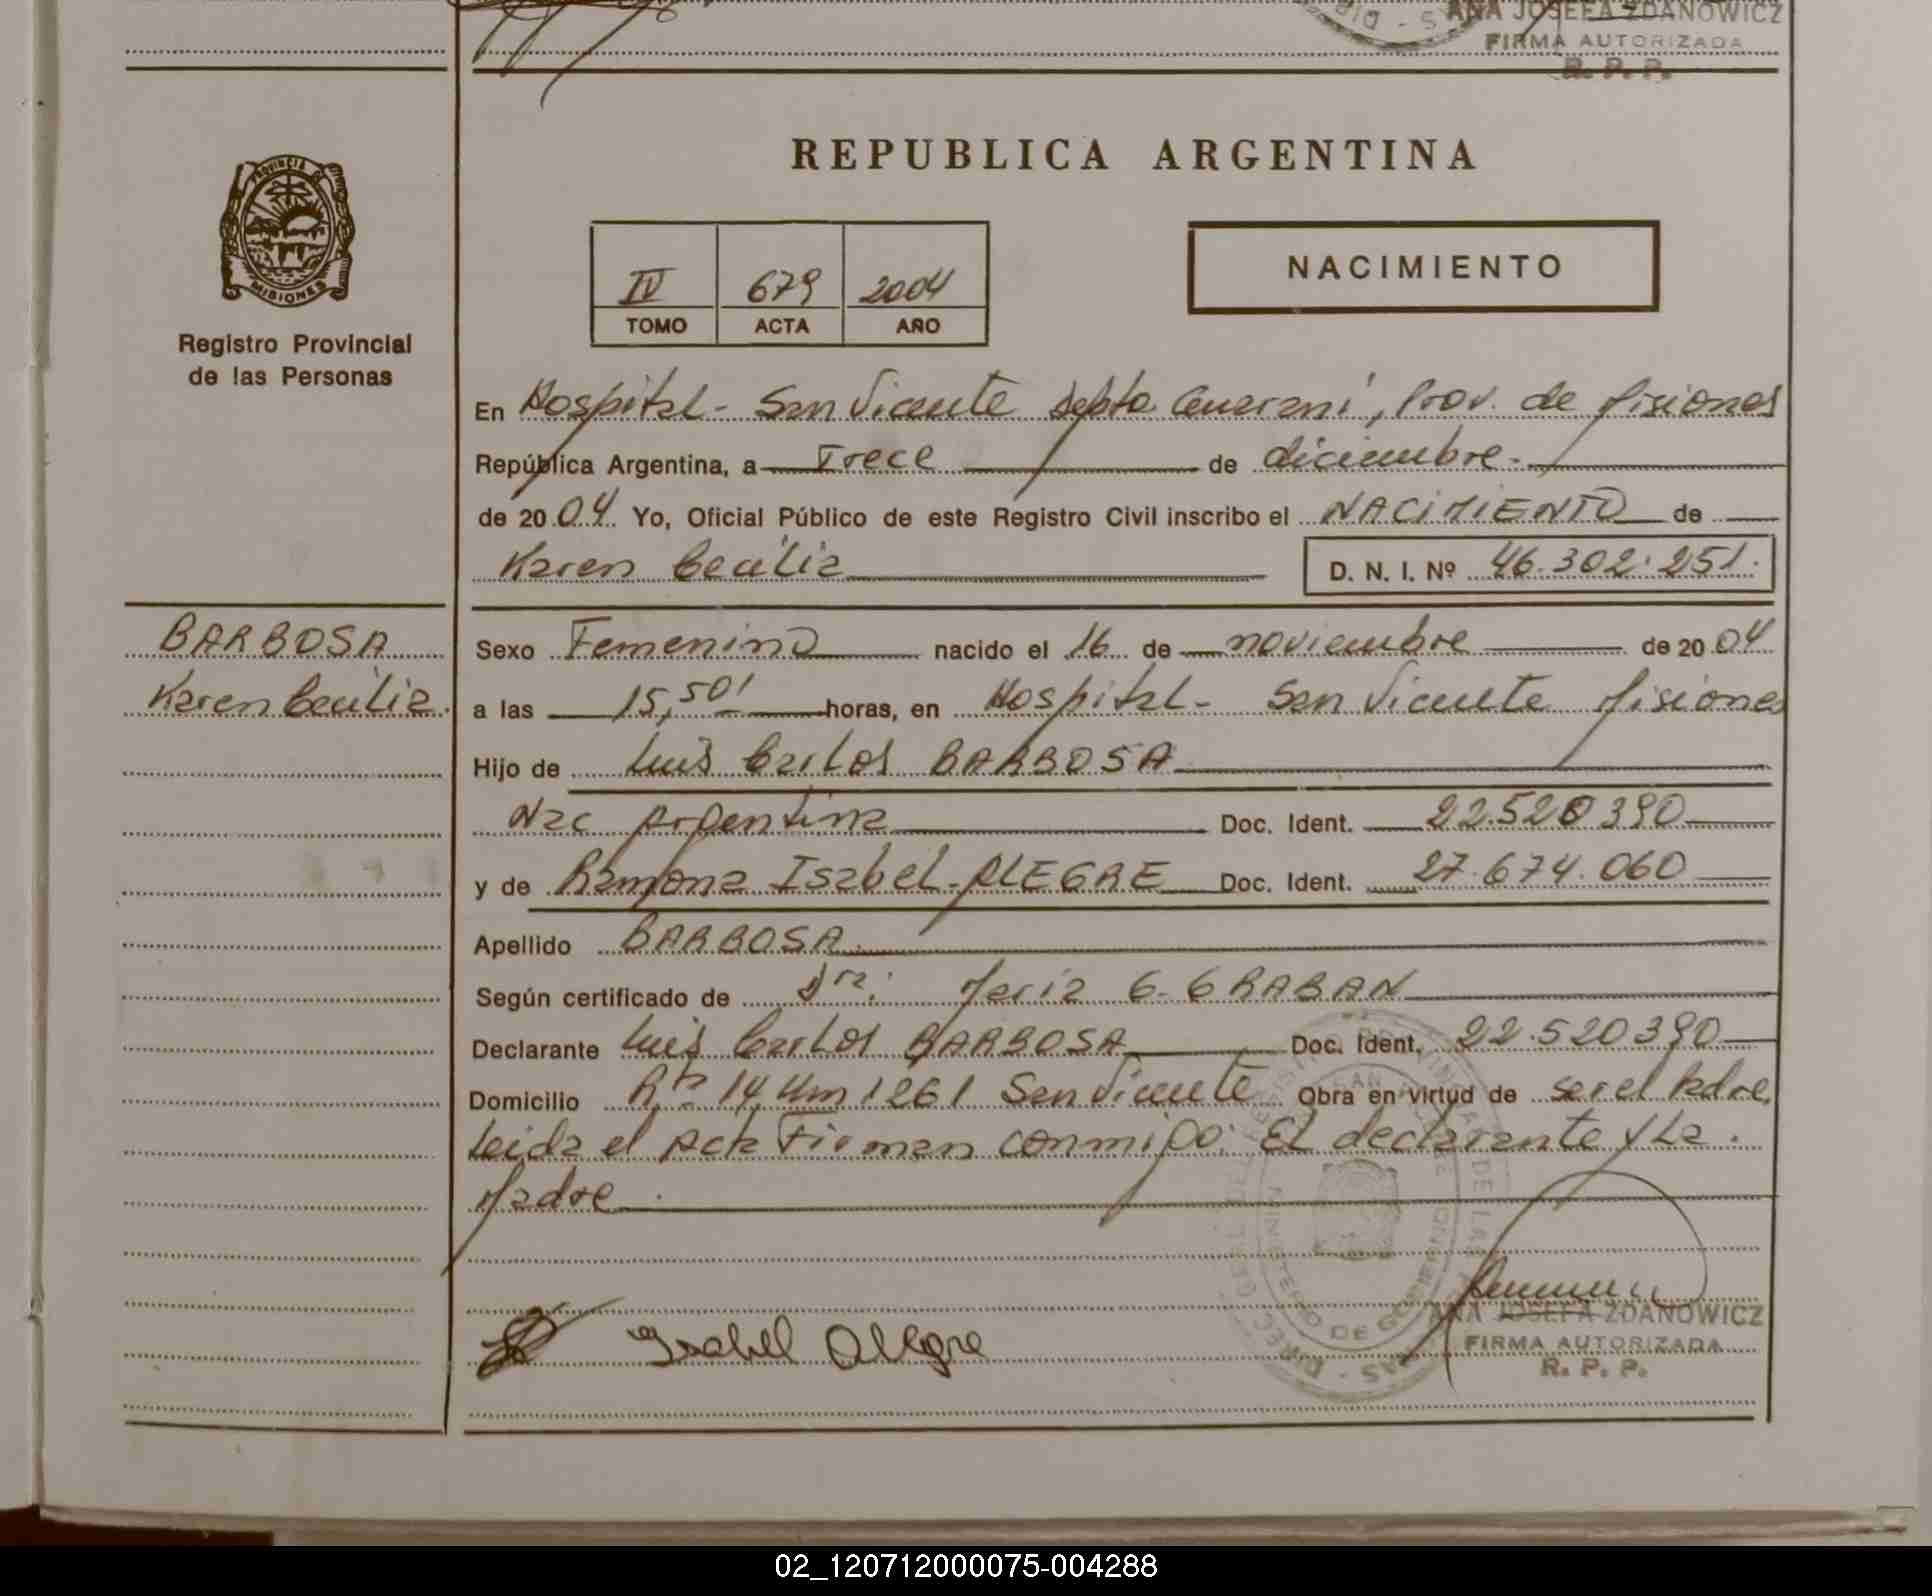 ANA JOSEFA ZDANOWICZ
FIRMA AUTORIZADA
R. P. P.
PROVINCIA DE
MISIONES
Registro Provincial
de las Personas
REPUBLICA ARGENTINA
IV 679 2004
TOMO ACTA AÑO
NACIMIENTO
En Hospital - San Vicente Depto. Guaraní, Prov. de Misiones
República Argentina, a Trece de diciembre.
de 2004 Yo, Oficial Público de este Registro Civil inscribo el NACIMIENTO de
Karen Cecilia D. N. I. Nº 46.302.251.
BARBOSA
Karen Cecilia.
Sexo Femenino nacido el 16 de noviembre de 2004
a las 15,50' horas, en Hospital - San Vicente Misiones
Hijo de Luis Carlos BARBOSA
Nac Argentina Doc. Ident. 22.520390
y de Ramona Isabel - ALEGRE Doc. Ident. 27.674.060
Apellido BARBOSA.
Según certificado de Dra. María G. GRABAN
Declarante Luis Carlos BARBOSA Doc. Ident. 22.520390
Domicilio Rta 14 Km 1261 San Vicente Obra en virtud de ser el Padre.
Leida el Acta Firman conmigo: El declarante y La.
Madre.
Isabel Allegre
ANA JOSEFA ZDANOWICZ
FIRMA AUTORIZADA
R. P. P.
02_120712000075-004288